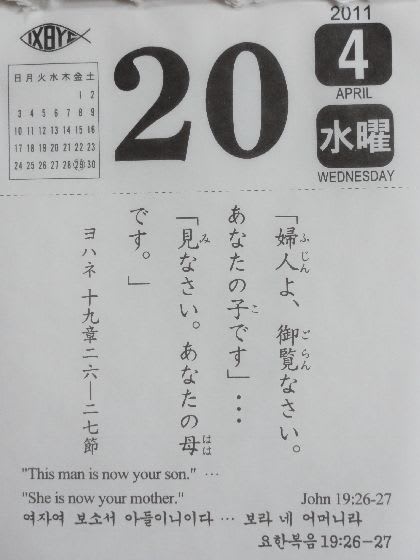 ΙΧΘΥΣ
2011
4
APRIL
水曜
WEDNESDAY
20
日 月 火 水 木 金 土
1 2
3 4 5 6 7 8 9
10 11 12 13 14 15 16
17 18 19 20 21 22 23
24 25 26 27 28 29 30
「婦人よ、御覧なさい。
ふじん ごらん
あなたの子です」・・・
こ
「見なさい。あなたの母
み はは
です。」
ヨハネ 十九章二六―二七節
"This man is now your son." …
"She is now your mother." John 19:26-27
여자여 보소서 아들이니이다 … 보라 네 어머니라
요한복음 19:26-27